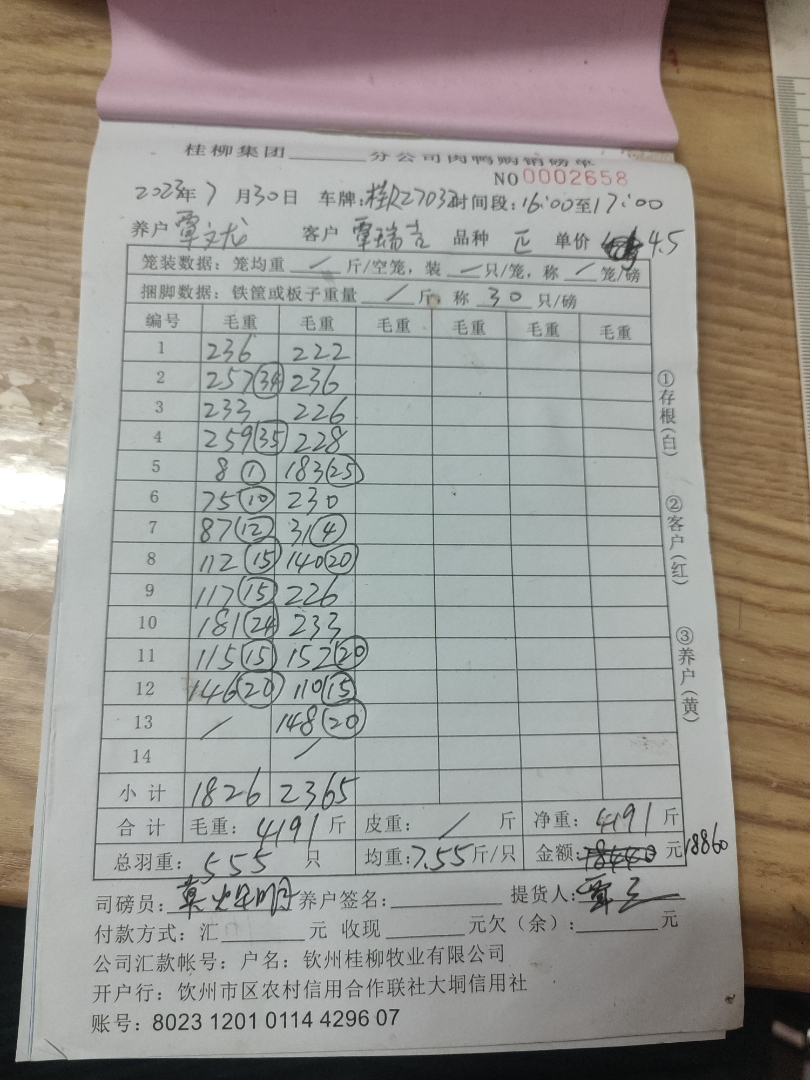 桂柳集团______分公司肉鸭购销磅单
NO 0002658
2023年7月30日 车牌:桂R27032 时间段:16:00至17:00
养户 覃文龙 客户 覃瑞吉 品种 正 单价 4.5
笼装数据: 笼均重 / 斤/空笼, 装 / 只/笼, 称 / 笼/磅
捆脚数据: 铁筐或板子重量 / 斤, 称 30 只/磅
编号 毛重 毛重 毛重 毛重 毛重 毛重
1 236 222
2 257(34) 236
3 233 226
4 259(35) 228
5 8(1) 183(25)
6 75(10) 230
7 87(12) 31(4)
8 112(15) 140(20)
9 117(15) 226
10 181(24) 233
11 115(15) 152(20)
12 146(20) 110(15)
13 / 148(20)
14 /
小计 1826 2365
合计 毛重: 4191 斤 皮重: / 斤 净重: 4191 斤
总羽重: 555 只 均重: 7.55斤/只 金额: 18440 元 18860
司磅员: 养户签名:________ 提货人:
付款方式: 汇______元 收现______元欠(余):______元
公司汇款帐号: 户名: 钦州桂柳牧业有限公司
开户行: 钦州市区农村信用合作联社大垌信用社
账号: 8023 1201 0114 4296 07
①存根(白)
②客户(红)
③养户(黄)